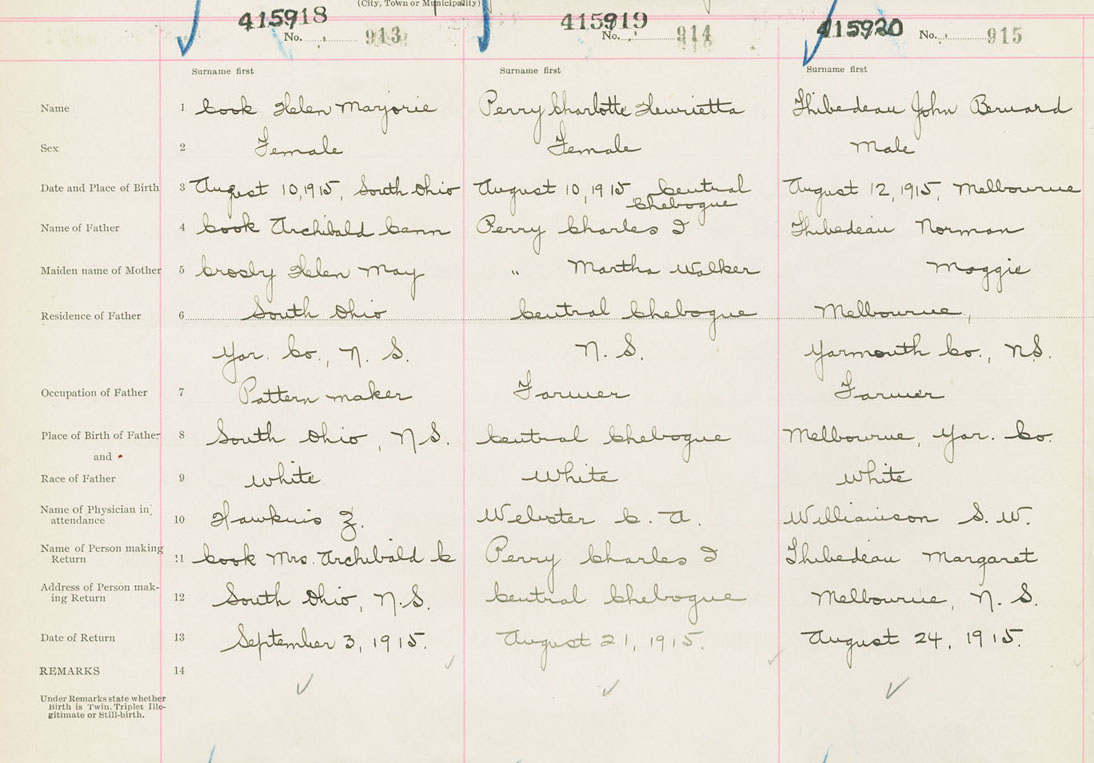 (City, Town or Municipality)
415918 415919 415920
No. 913 No. 914 No. 915
Surname first Surname first Surname first
Name 1 Cook Helen Marjorie Perry Charlotte Henrietta Thibedeau John Bernard
Sex 2 Female Female Male
Date and Place of Birth 3 August 10, 1915, South Ohio August 10, 1915 Central Chebogue August 12, 1915, Melbourne
Name of Father 4 Cook Archibald Cann Perry Charles I Thibedeau Norman
Maiden name of Mother 5 Crosby Helen May " Martha Walker Maggie
Residence of Father 6 South Ohio Central Chebogue Melbourne,
Yar. Co., N. S. N. S. Yarmouth Co., N.S.
Occupation of Father 7 Pattern maker Farmer Farmer
Place of Birth of Father 8 South Ohio, N.S. Central Chebogue Melbourne, Yar. Co.
and
Race of Father 9 White White White
Name of Physician in attendance 10 Hawkins Z. Webster C. A. Williamson S. W.
Name of Person making Return 11 Cook Mrs. Archibald C Perry Charles I Thibedeau Margaret
Address of Person mak- ing Return 12 South Ohio, N.S. Central Chebogue Melbourne, N. S.
Date of Return 13 September 3, 1915. August 21, 1915. August 24, 1915.
REMARKS 14
Under Remarks state whether
Birth is Twin, Triplet Ille-
gitimate or Still-birth.